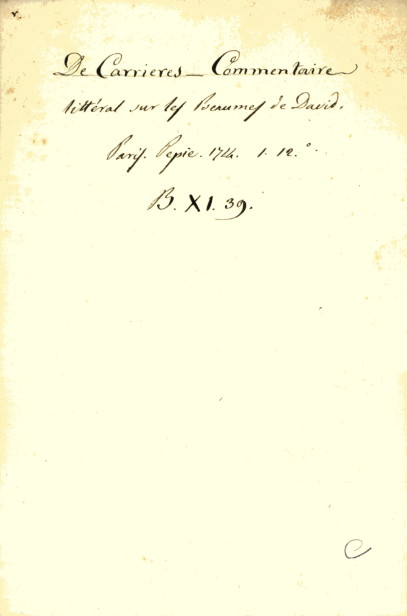 De Carrieres _ Commentaire
littéral sur les Pseaumes de David.
Paris. Pepie. 1714. 1. 12.°
B. XI. 39.
C